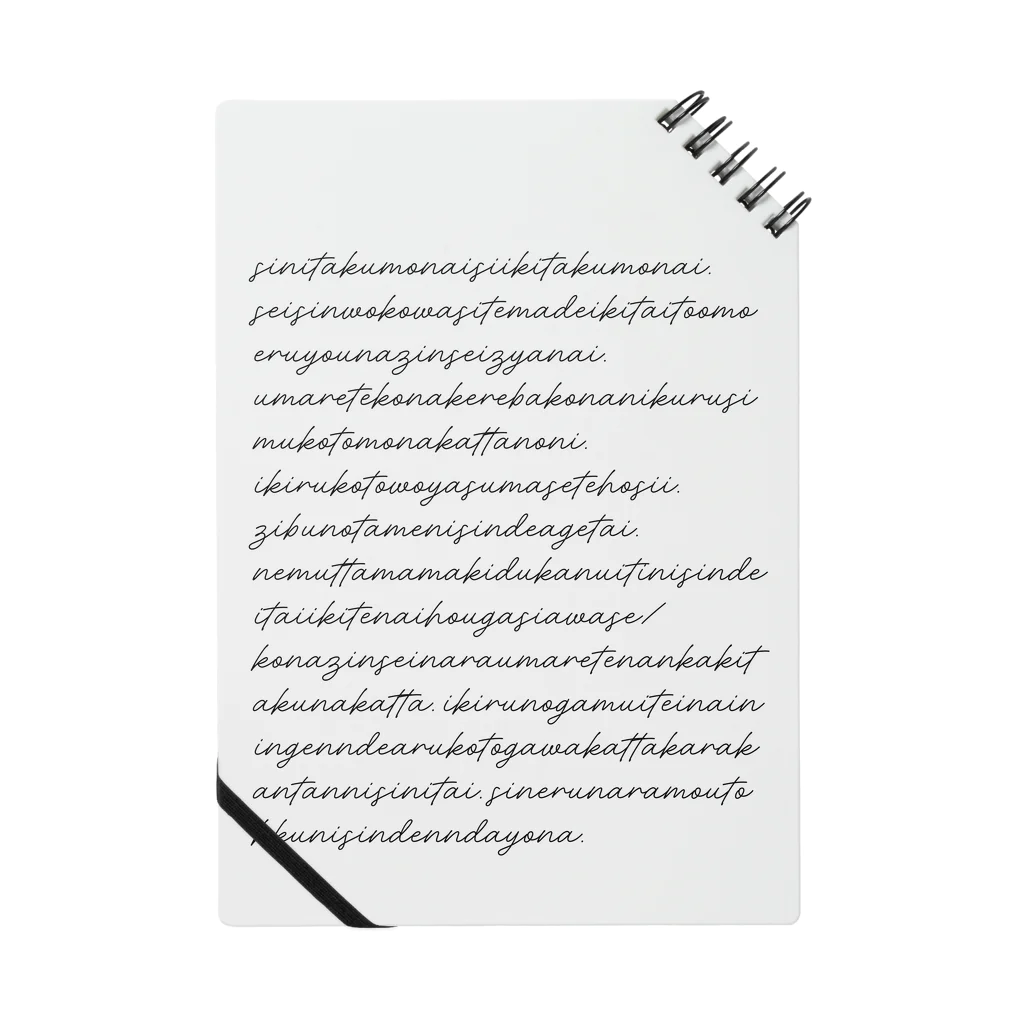 sinitakumonaisiikitakumonai.
seisinwokowasitemadeikitaitoomo
eruyounazinseizyanai.
umaretekonakerebakonanikurusi
mukotomonakattanoni.
ikirukotowoyasumasetehosii.
zibunotamenisindeagetai.
nemuttamamakidukanuitinisinde
itaiikitenaihougasiawase/
konazinseinaraumaretenankakit
akunakatta. ikirunogamuiteinain
ingenndearukotogawakattakarak
antannisinitai. sinerunaramouto
kkunisindenndayona.